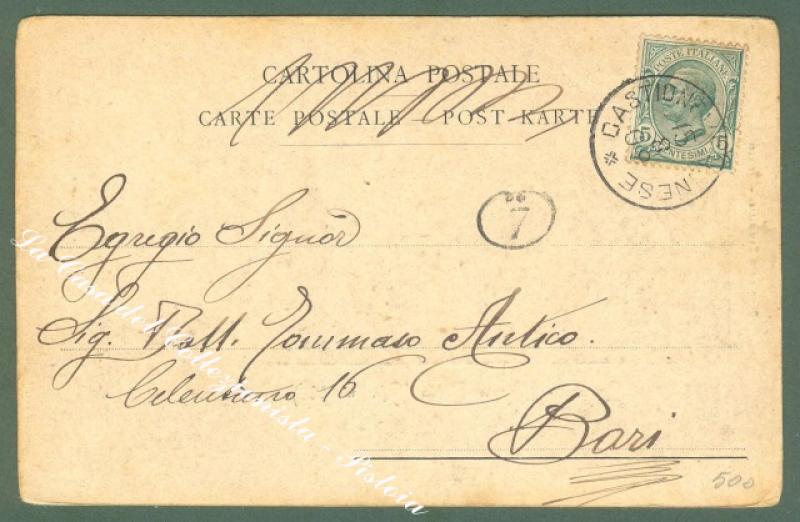 CARTOLINA POSTALE
CARTE POSTALE - POST KARTE
POSTE ITALIANE
5 CENTESIMI 5
CASTIONE
NESE
7
Egregio Signor
Sig. Dott. Tommaso Antico.
16
Bari
500
La Casa del Collezionista - Pistoia